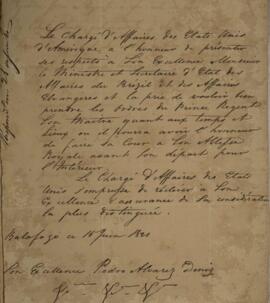 Le Chargé D'Affaires des Etats Unis
d'Amérique, a l'honneur de présenter
ses respects à Son Excellence Monsieur
le Ministre et Secretaire d'Etat des
Affaires du Brézil et des Affaires
Etrangeres et la prie de vouloir bien
prendre les Ordres du Prince Regent
Son Maitre quant aux temps et
Lieu ou il pourra avoir l'honneur
de faire Sa Cour a Son Altesse
Royale avant Son depart pour
l'Interieur.
Le Chargé D'Affaires des Etats
Unis s'empresse de réiterer à Son
Excellence l'assurance de Sa consideration
la plus distinguée.
Botafogo ce Juin 1821
Son Excellence Pedro Alvarez Diniz